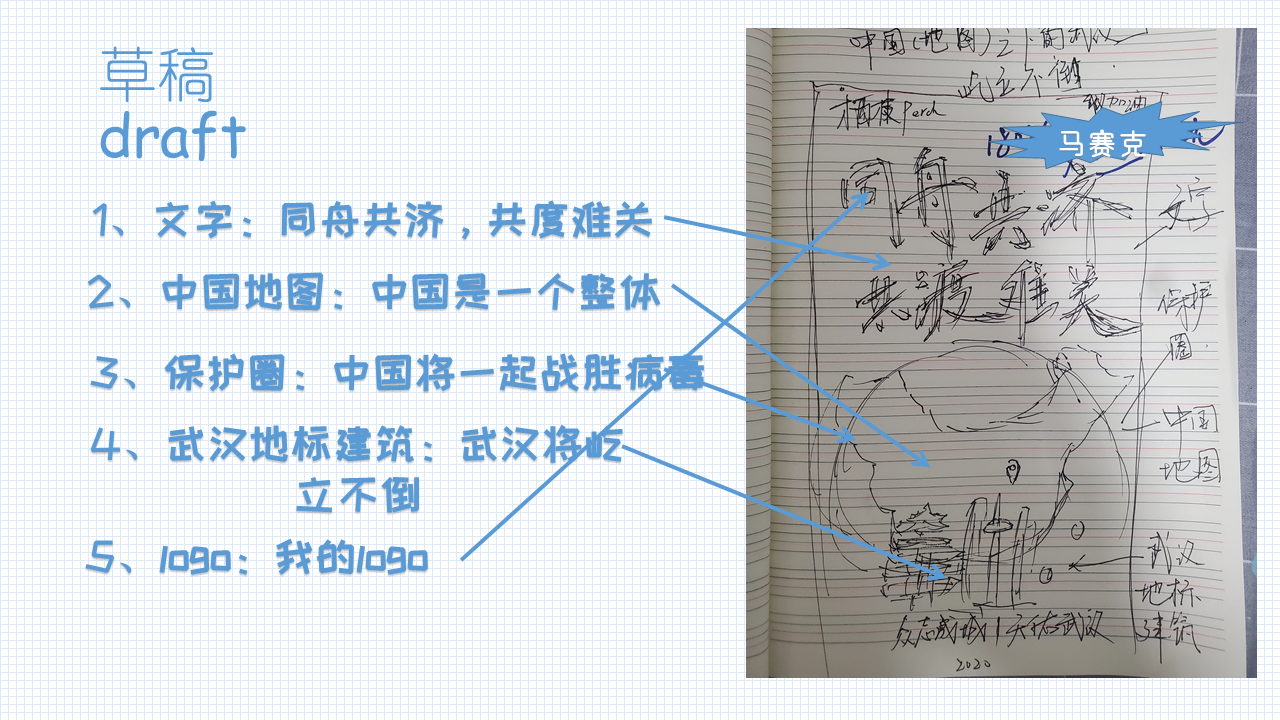 草稿
draft
1、文字：同舟共济，共度难关
2、中国地图：中国是一个整体
3、保护圈：中国将一起战胜病毒
4、武汉地标建筑：武汉将屹
立不倒
5、logo：我的logo
中国(地图)之下的武汉
屹立不倒
栖栋Perch
马赛克
同舟共济
共度难关
文字
保护
圈
中国
地图
武汉
地标
建筑
众志成城|天佑武汉
2020